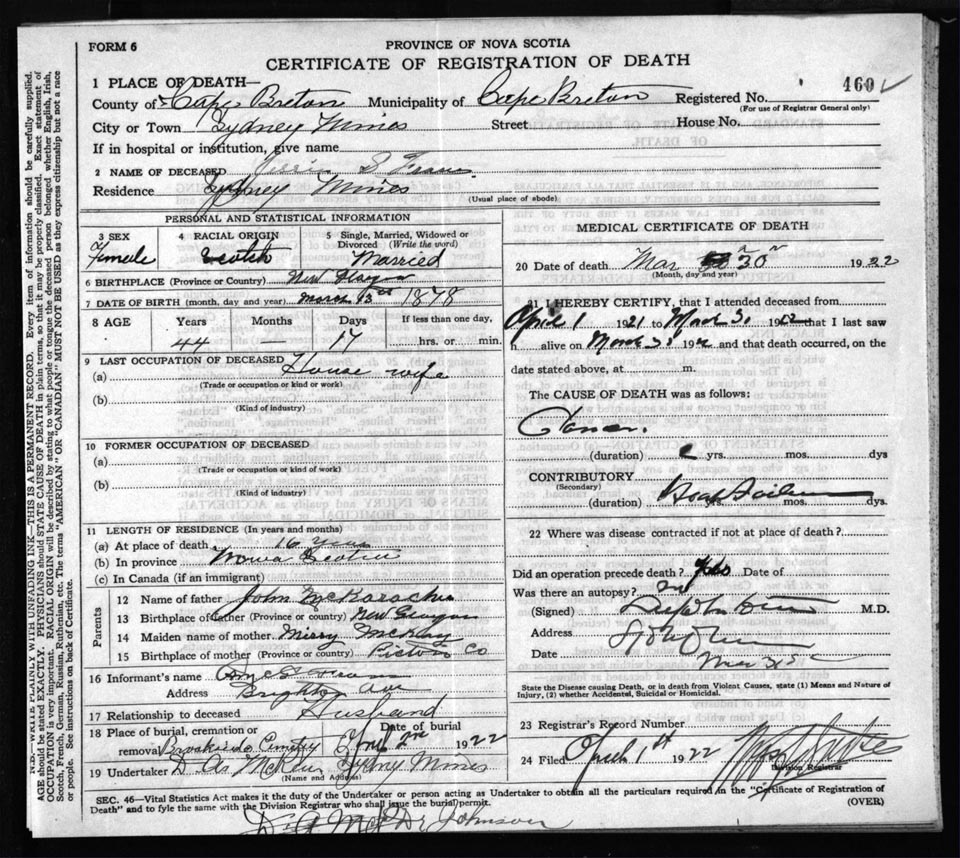 FORM 6
PROVINCE OF NOVA SCOTIA
CERTIFICATE OF REGISTRATION OF DEATH
1 PLACE OF DEATH—
County of Cape Breton Municipality of Cape Breton Registered No. 460
(For use of Registrar General only)
City or Town Sydney Mines Street House No.
If in hospital or institution, give name
2 NAME OF DECEASED
Residence Sydney Mines
(Usual place of abode)
PERSONAL AND STATISTICAL INFORMATION
3 SEX 4 RACIAL ORIGIN 5 Single, Married, Widowed or Divorced (Write the word)
Female Scotch Married
6 BIRTHPLACE (Province or Country) New
7 DATE OF BIRTH (month, day and year) March 13th 1878
8 AGE Years Months Days If less than one day,
44 — 17 hrs. or min.
9 LAST OCCUPATION OF DECEASED
(a) House wife
(Trade or occupation or kind or work)
(b)
(Kind of industry)
10 FORMER OCCUPATION OF DECEASED
(a)
(Trade or occupation or kind or work)
(b)
(Kind of industry)
11 LENGTH OF RESIDENCE (In years and months)
(a) At place of death 16 years
(b) In province Nova Scotia
(c) In Canada (if an immigrant)
Parents
12 Name of father John
13 Birthplace of father (Province or country) New
14 Maiden name of mother McKay
15 Birthplace of mother (Province or country) Pictou Co
16 Informant's name
Address Brighton Ave
17 Relationship to deceased Husband
18 Place of burial, cremation or removal Brookside Cemetery Date of burial 2nd 1922
19 Undertaker Sydney Mines
(Name and Address)
MEDICAL CERTIFICATE OF DEATH
20 Date of death Mar 30 1922
(Month, day and year)
21 I HEREBY CERTIFY, that I attended deceased from
April 1 1921 to March 30 1922 that I last saw
h alive on March 30 192 and that death occurred, on the
date stated above, at m.
The CAUSE OF DEATH was as follows:
Cancer.
(duration) yrs. mos. dys
CONTRIBUTORY
(Secondary)
(duration) yrs. mos. dys.
22 Where was disease contracted if not at place of death?
Did an operation precede death? Date of
Was there an autopsy?
(Signed) M.D.
Address
Date Mar 31
State the Disease causing Death, or in death from Violent Causes, state (1) Means and Nature of
Injury, (2) whether Accidental, Suicidal or Homicidal.
23 Registrar's Record Number
24 Filed April 1st 1922
Division Registrar
SEC. 46—Vital Statistics Act makes it the duty of the Undertaker or person acting as Undertaker to obtain all the particulars required in the "Certificate of Registration of
Death" and to fyle the same with the Division Registrar who shall issue the burial permit. (OVER)
Dr Johnson
N.B.—WRITE PLAINLY WITH UNFADING INK—THIS IS A PERMANENT RECORD. Every item of information should be carefully supplied.
AGE should be stated EXACTLY. PHYSICIANS should STATE CAUSE OF DEATH in plain terms, so that it may be properly classified. Exact statement of
OCCUPATION is very important. RACIAL ORIGIN will be described by stating to what people or tongue the deceased person belonged, whether English, Irish,
Scotch, French, German, Russian, Ruthenian, etc. The terms "AMERICAN" OR "CANADIAN" MUST NOT BE USED as they express citizenship but not a race
or people. See instructions on back of Certificate.